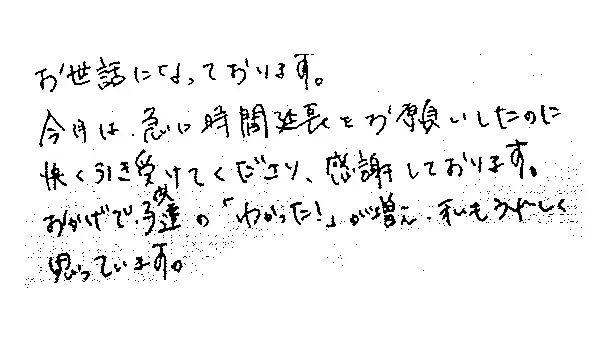 お世話になっております。
今月は、急に時間延長をお願いしたのに
快く引き受けてくださり、感謝しております。
おかげで、子達の「わかった!」が増え、私もうれしく
思っています。